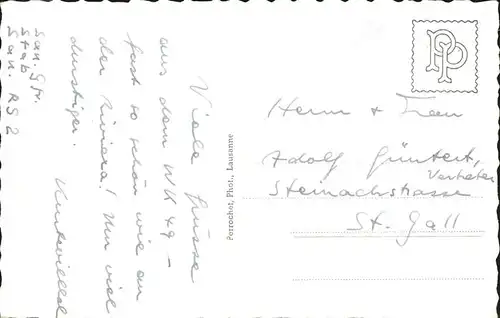 San. Gfr.
Stab
San. RS 2
Viele Grüsse
aus dem WK 49 –
fast so schön wie an
der Riviera! Nur viel
durstiger.
Perrochet, Phot., Lausanne
PP
Herrn + Frau
Adolf Güntert,
Vertreter
Steinachstrasse
St. Gall